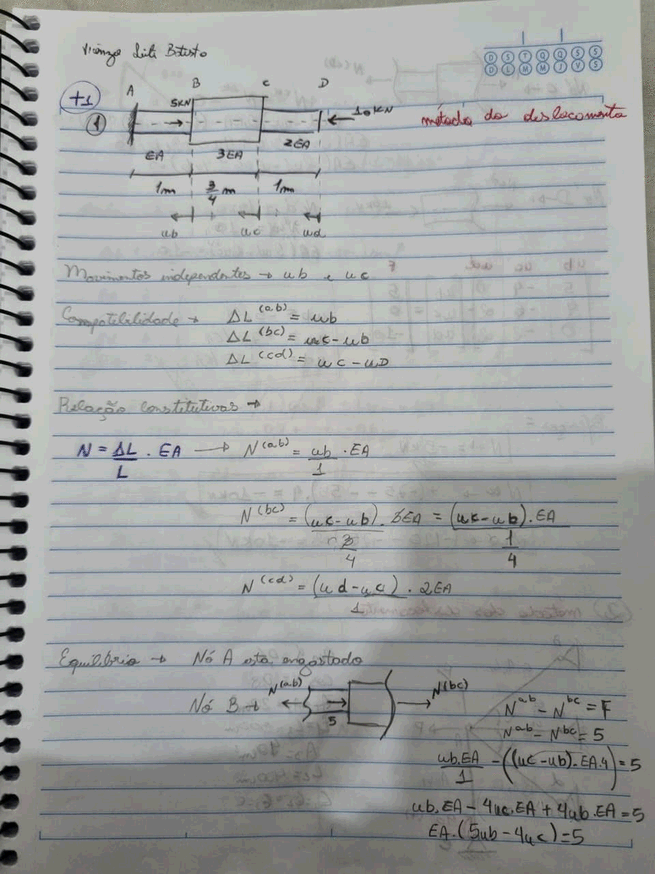 D S T Q Q S S
D L M M J V S
+1
A B C D
1
5KN
10KN
método do deslocamento
EA 3EA 2EA
1m 3/4 m 1m
ub uc ud
Movimentos independentes → ub e uc
Compatibilidade → ΔL^(ab) = ub
ΔL^(bc) = uc - ub
ΔL^(cd) = uc - uD
Relação constitutivas →
N = ΔL/L . EA → N^(ab) = ub/1 . EA
N^(bc) = (uc - ub)/(3/4) . 3EA = (uc - ub)/(1/4) . EA
N^(cd) = (ud - uc)/1 . 2EA
Equilibrio → Nó A esta engastado
Nó B → N(ab) 5 N(bc)
N^ab - N^bc = F
N^ab - N^bc = 5
ub.EA/1 - ((uc - ub).EA.4) = 5
ub.EA - 4uc.EA + 4ub.EA = 5
EA.(5ub - 4uc) = 5